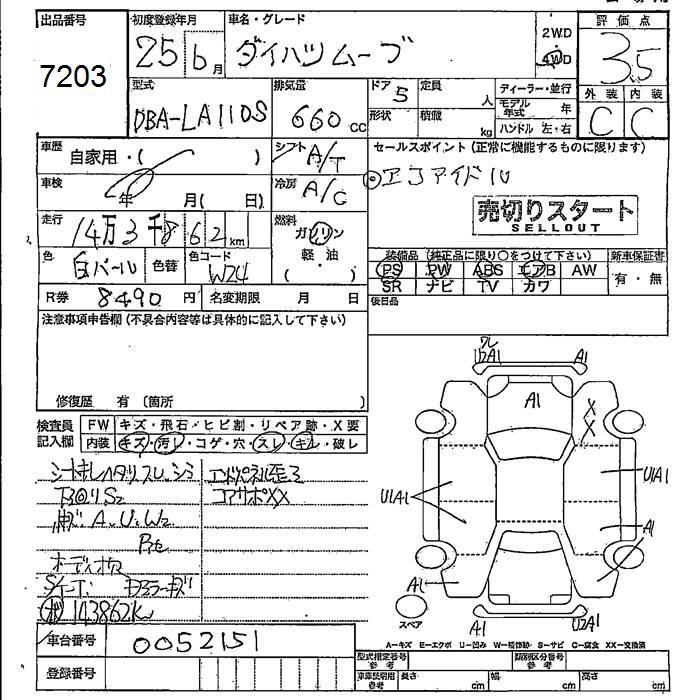 出品番号
7203
初度登録年月
25 6月
車名・グレード
ダイハツムーブ
2WD
4WD
評価点
3.5
外装 内装
C C
型式
DBA-LA110S
排気量
660 cc
ドア 5
定員 人
形状
積載 kg
ディーラー・並行
モデル年式 年
ハンドル 左・右
車歴
自家用・( )
シフト A/T
セールスポイント (正常に機能するものに限ります)
◎エコアイドル
車検
年 月( 日)
冷房 A/C
売切りスタート
SELLOUT
走行
14万3千862km
燃料
ガソリン
軽・油
( )
色
白パール
色替
色コード
W24
装備品 (純正品に限り○をつけて下さい)
新車保証書
PS PW ABS エアB AW
SR ナビ TV カワ
有・無
R券 8490円
名変期限 月 日
後日品
注意事項申告欄 (不具合内容等は具体的に記入して下さい)
修復歴 有 (箇所 )
検査員記入欄
FW キズ・飛石・ヒビ割・リペア跡・X要
内装 キズ・汚レ・コゲ・穴・スレ・キレ・破レ
コアサポXX
A.U.W2
143862K
車台番号 0052151
登録番号
U2A1
A1
A1
X
X
U1A1
U1A1
A1
A1
スペア
A1
U2A1
A=キズ E=エクボ U=凹み W=補修跡 S=サビ C=腐食 XX=交換済
型式指定番号 参考
類別区分番号 参考
車庫証明用 参考
長さ cm
幅 cm
高さ cm